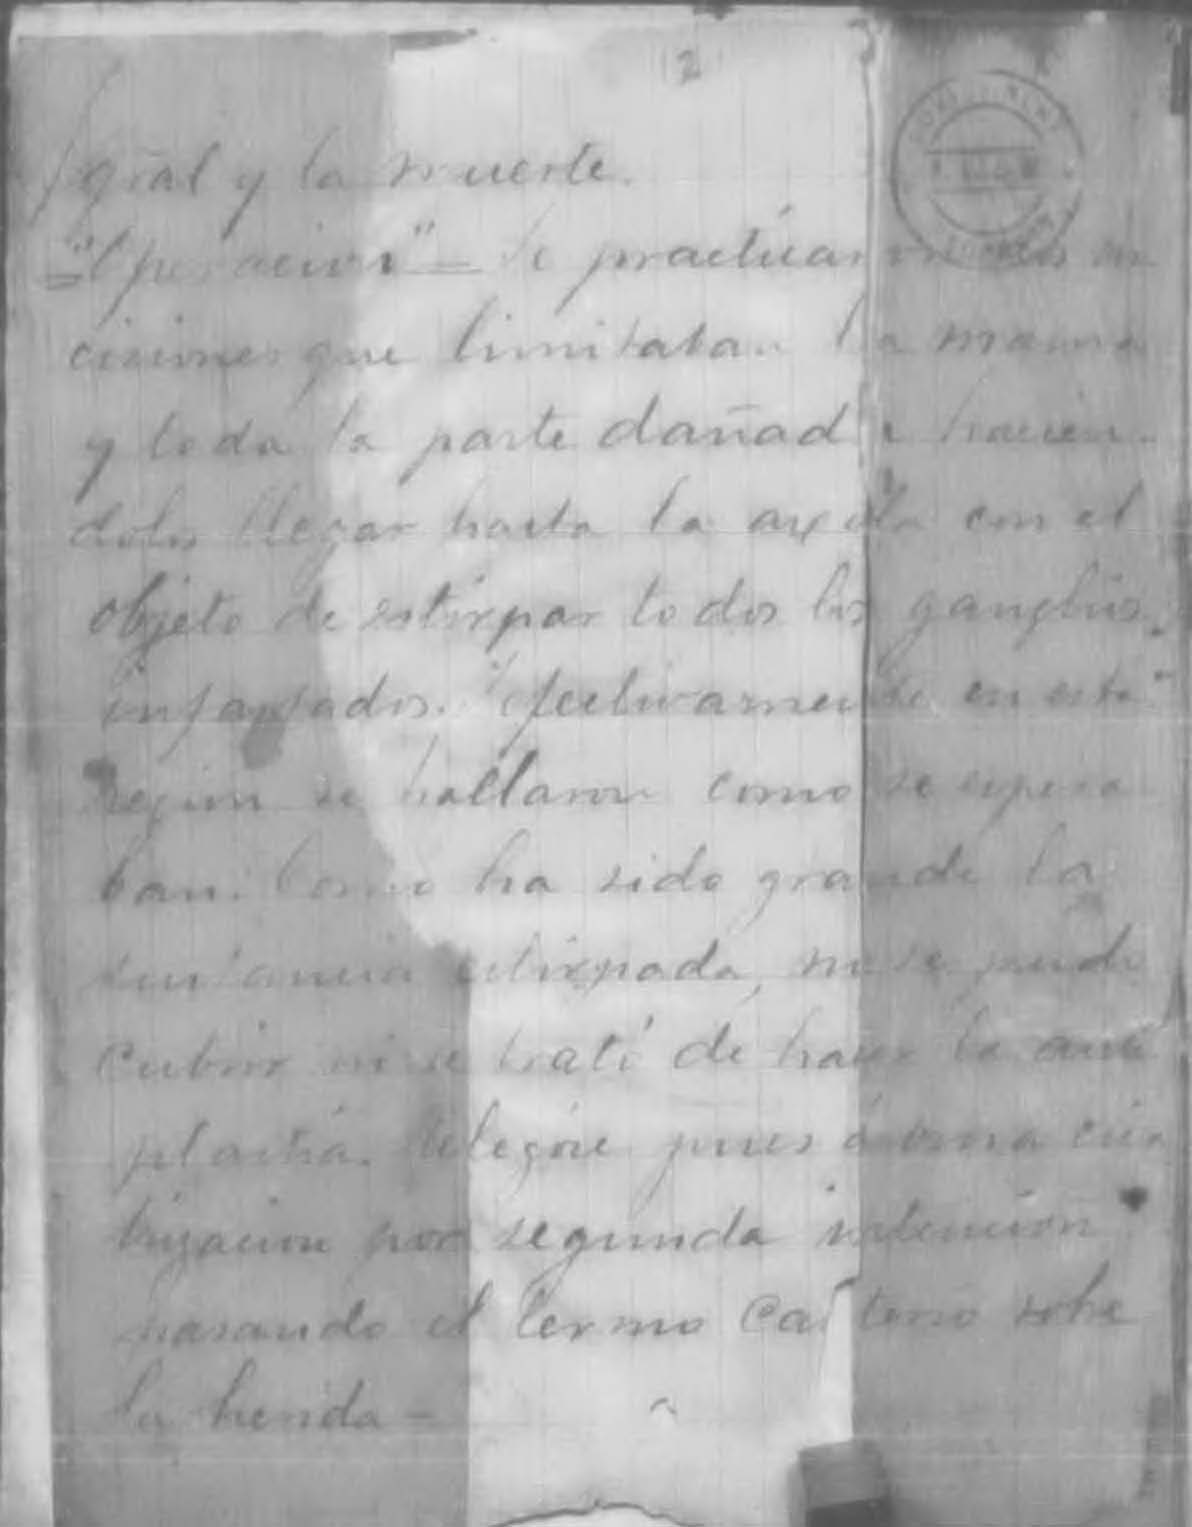 2
gral y la muerte.
"Operacion" - Se practicaron dos in
cisiones que limitaban la mama
y toda la parte dañada hacien-
dolos llegar hasta la axila con el
objeto de estirpar todos los ganglios
infartados. Efectivamente en esta
region se hallaron como se espera
ban. Como ha sido grande la
sustancia estirpada, no se pudo
cubrir ni se trató de hacer la auto
plastia. Dejose pues a una cica
trizacion por segunda intencion
pasando el termo cauterio sobre
la herida -